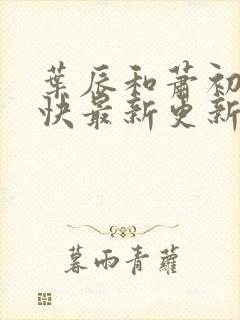 葉辰和蕭初
快最新更新
暮雨青蘿